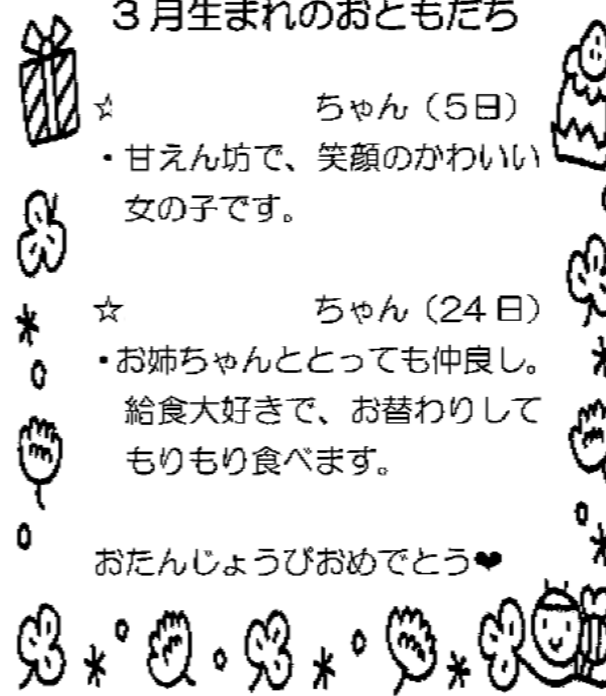 3月生まれのおともだち
☆　　　　　　ちゃん（5日）
・甘えん坊で、笑顔のかわいい
女の子です。
☆　　　　　　ちゃん（24日）
・お姉ちゃんととっても仲良し。
給食大好きで、お替わりして
もりもり食べます。
おたんじょうびおめでとう❤